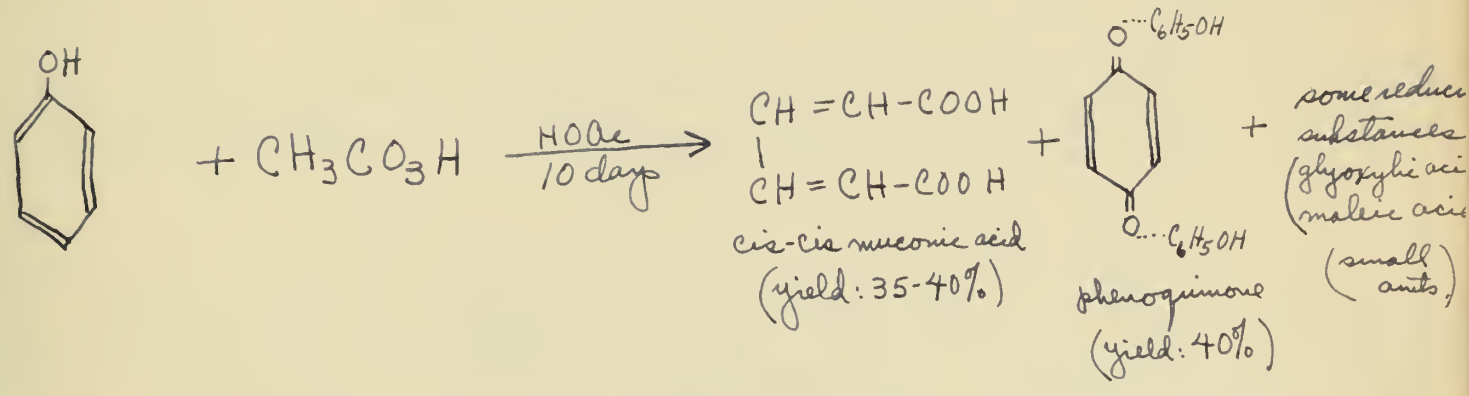 OH
+ CH₃CO₃H
HOAc
10 days
CH = CH-COOH
CH = CH-COOH
cis-cis muconic acid
(yield: 35-40%)
+
O····C₆H₅OH
O····C₆H₅OH
phenoquinone
(yield: 40%)
+
some reduc
substances
(glyoxylic aci
(maleic aci
(small
amts.)